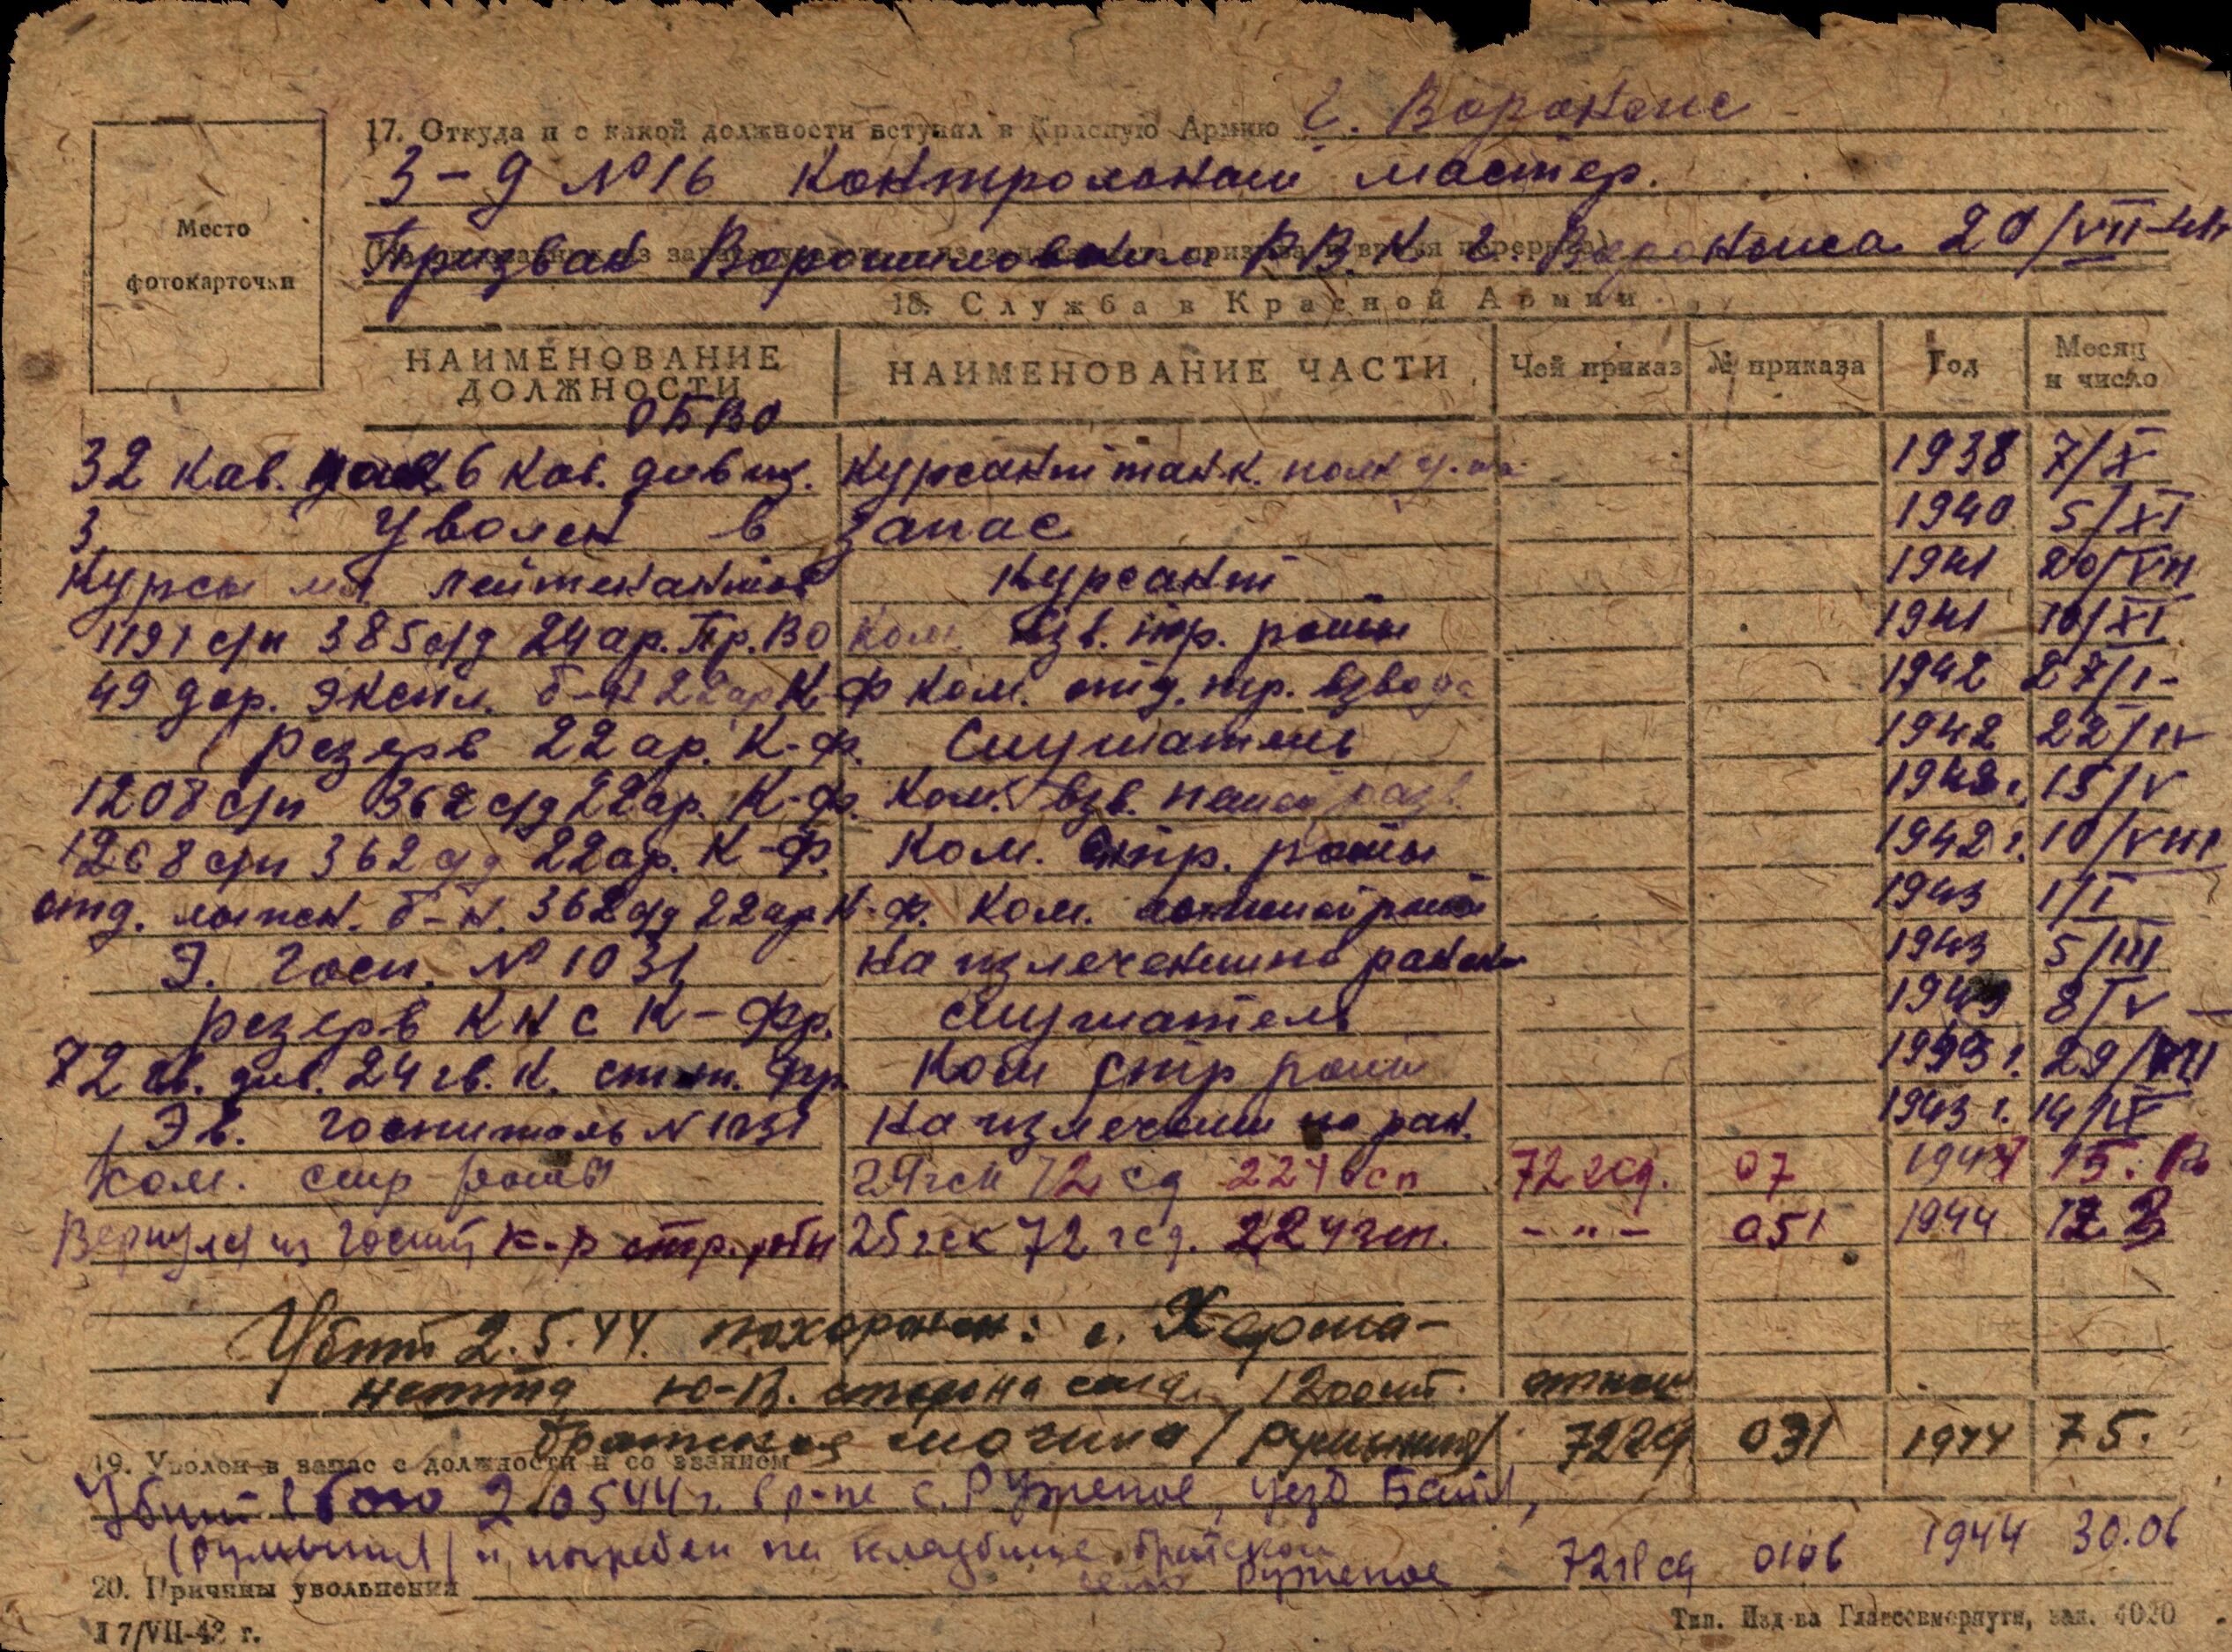 Место
фотокарточки
17. Откуда и с какой должности вступил в Красную Армию г. Воронеж
З-д №16 контрольный мастер.
Призван Ворошиловским РВК г. Воронежа 20/VII-41г
18. Служба в Красной Армии
НАИМЕНОВАНИЕ ДОЛЖНОСТИ НАИМЕНОВАНИЕ ЧАСТИ Чей приказ № приказа Год Месяц и число
ОБВО
32 кав. 6 кав. дивиз. курсант танк. полк 1938 7/X
Уволен в запас 1940 5/XI
Курсы мл лейтенантов Курсант 1941 20/VII
1191 с/п 385 с/д 24 ар. Пр.ВО Ком. взв. стр. роты 1941 10/XI
49 дор. экспл. б-н 22 ар К-ф ком. отд. взвода 1942 27/I-
резерв 22 ар. К-ф. Слушатель 1942 22/IV
1208 с/п 362 с/д 22 ар. К-ф. Ком. взв. пешей разв. 1942 г. 15/V
1208 с/п 362 с/д 22 ар. К-ф. Ком. стр. роты 1942 г. 10/VIII
отд. лыжн. б-н. 362 с/д 22 ар К-ф. Ком. роты 1943 1/I
Э. Госп. №1031 На излечении по ранен 1943 5/III
резерв КНС К-Фр. слушатель 1943 8/V
72 гв. див. 24 гв. к. степ. фр. Ком стр роты 1943 г. 29/VII
Эв. госпиталь N1031 На излечении по ран. 1943 г. 14/IX
Ком. стр роты 24 гск 72 сд 224 сп 72 гсд. 07 194 15.
Вернулся из госпит к-р стр. роты 25 гск 72 гсд. 224 гсп. -"- 051 1944 12 3
Убит 2.5.44. похоронен: с. Харма-
нешты ю-в. сторона села 1200 мт. отм
братская могила /румыния/ 72 гд 031 1944 7 5.
19. Уволен в запас с должности и со званием
Убит в бою 2.05 44 г. в р-не с. Ружепос, уезд
(румыния) и погребен на кладбище братском
село Ружепос 72 гв сд 0106 1944 30.06
20. Причины увольнения
Л 7/VII-42 г.
Тип. Изд-ва Главсевморпути, зак. 4020